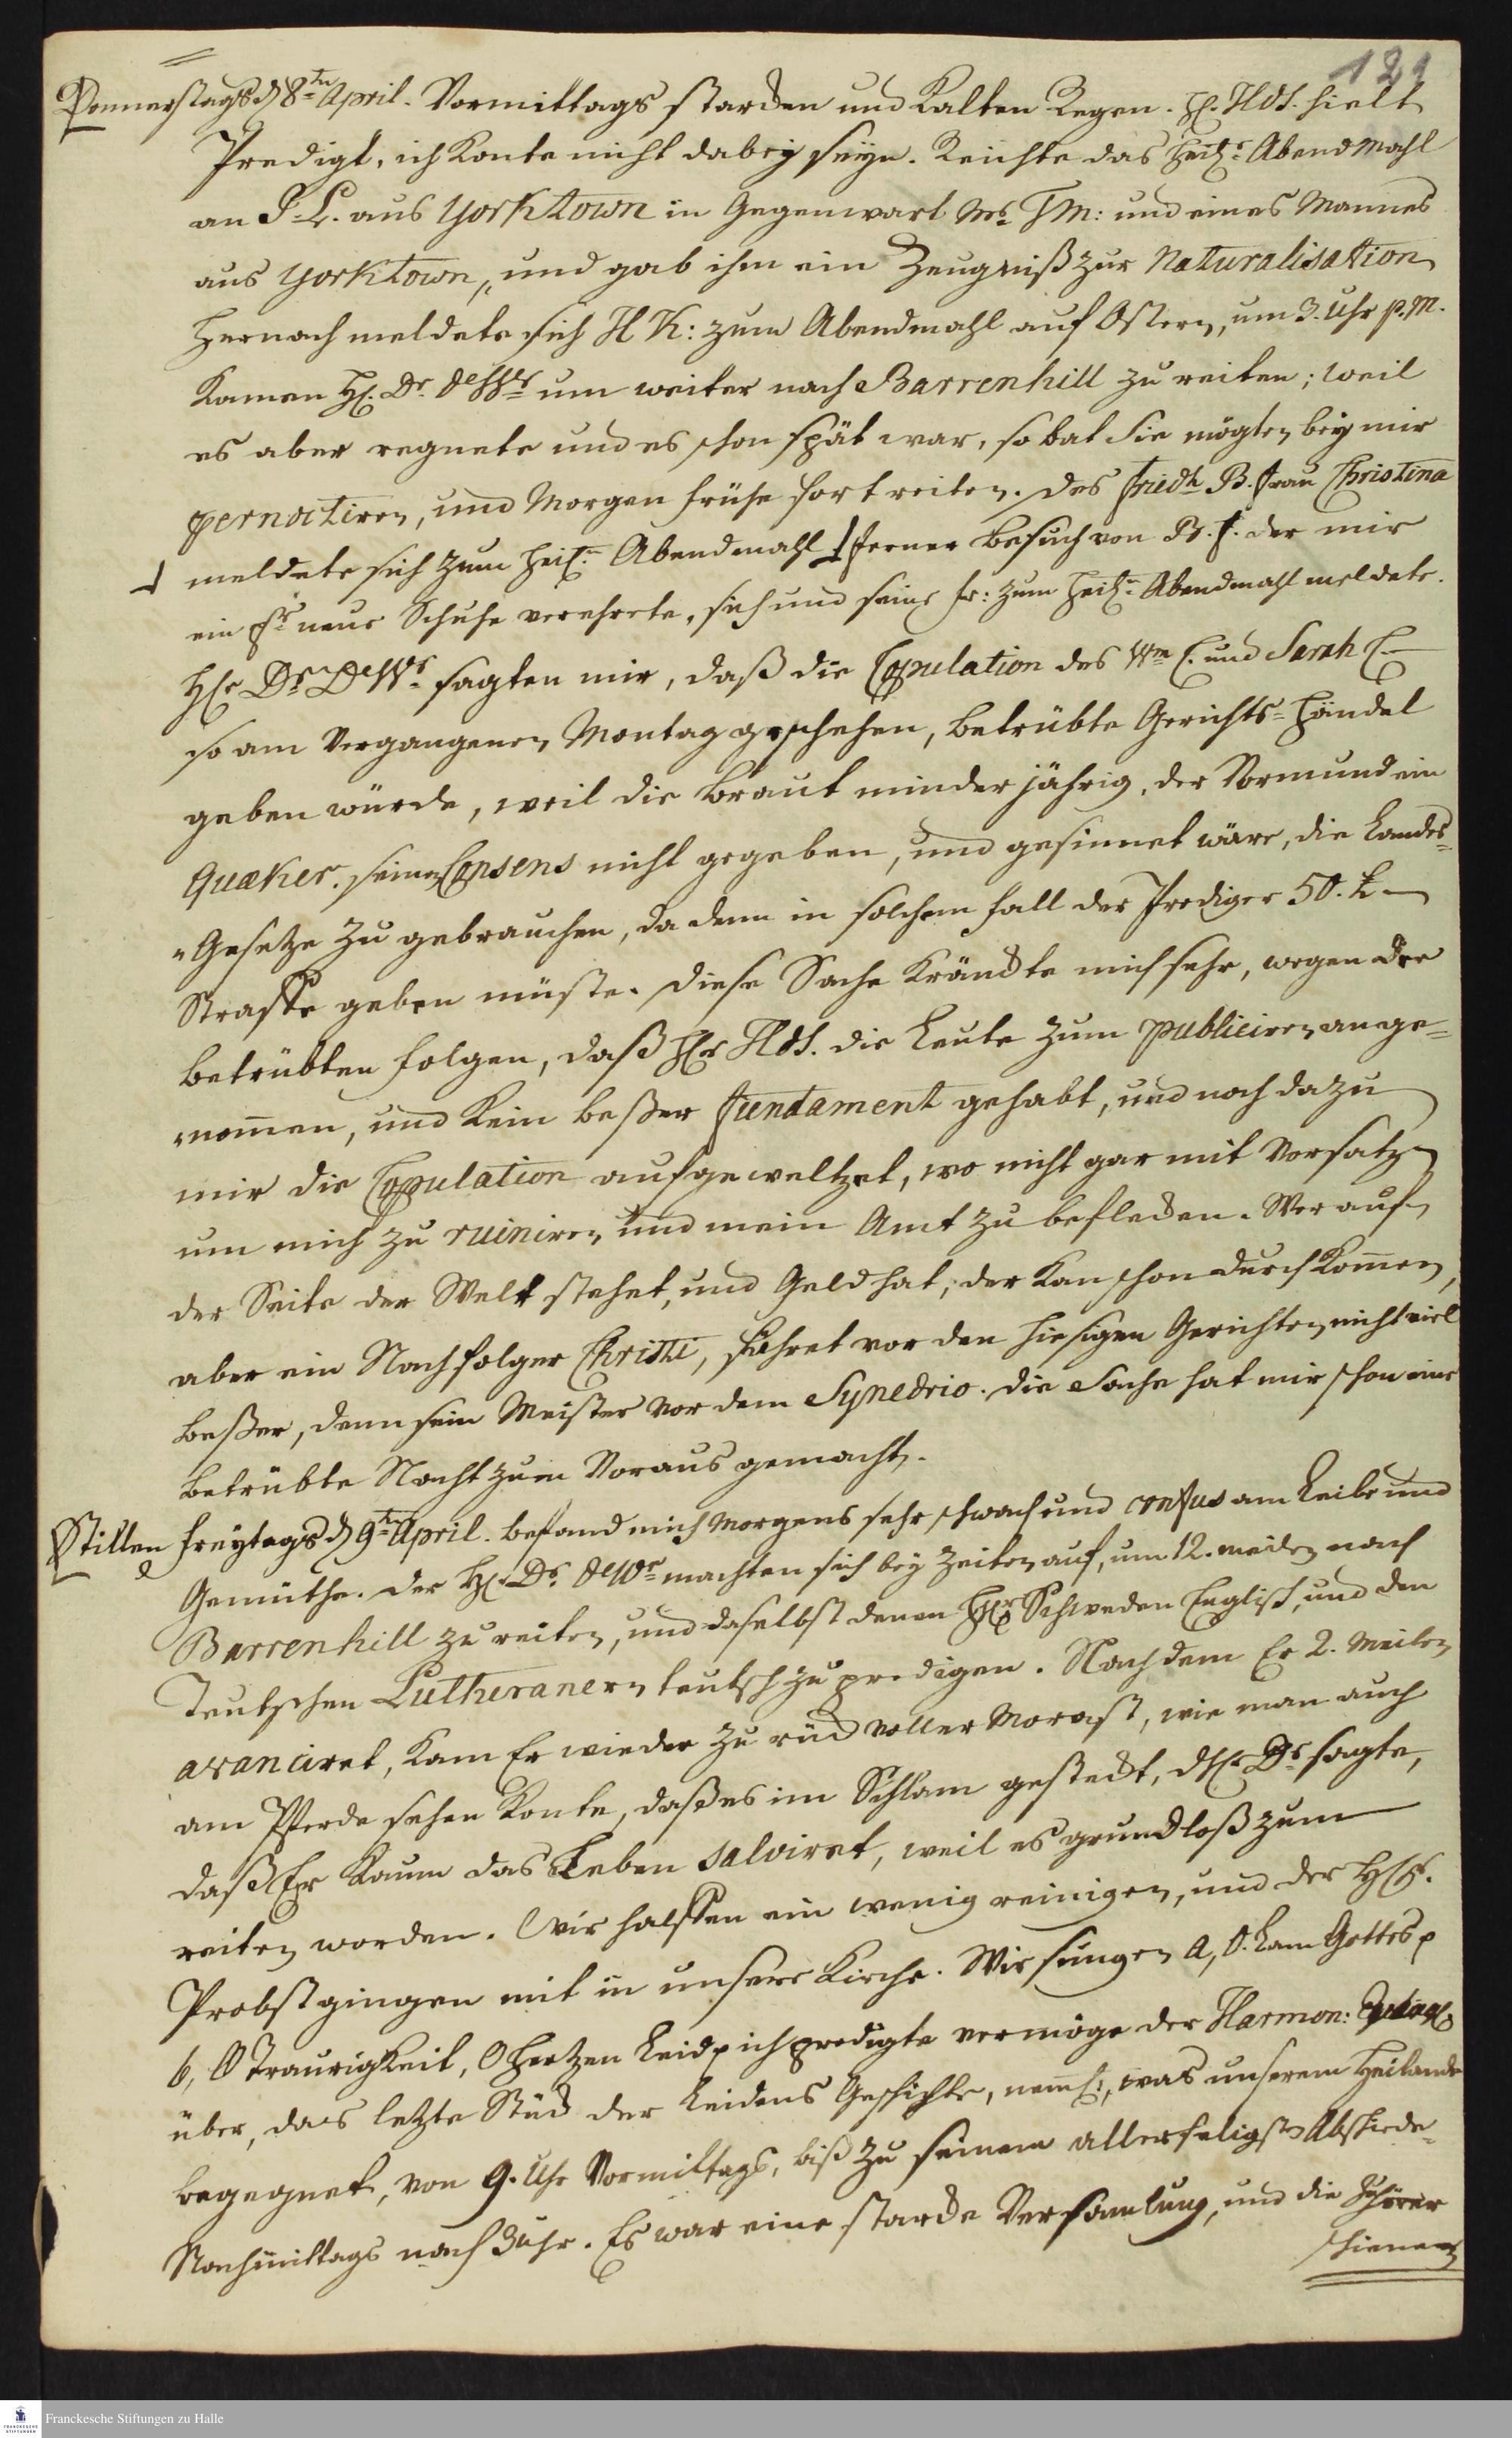 121
Donnerstags d 8ten April. Vormittags starcken und kalten Regen. H. Hds. hielt
Predigt, ich konte nicht dabey seyn. Reichte das Heil. Abendmahl
an J. L. aus Yorktown in Gegenwart Mr. TM: und eines Mannes
aus Yorktown, und gab ihm ein Zeugniß zur Naturalisation
Hernach meldete sich H K: zum Abendmahl auf Ostern, um 3. Uhr p. M.
kamen H. Dr. um weiter nach Barrenhill zu reiten; weil
es aber regnete und es schon spät war, so bat Sie mögten bey mir
pernoctiren, und Morgen frühe fortreiten. Des Friedh B. Frau Christina
meldete sich zum Heil. Abendmahl ferner Besuch von B. F. der mir
ein neue Schuhe verehrete, sich und seine Fr: zum Heil. Abendmahl meldete.
HEr Dr. DeWr. sagten mir, daß die Copulation des Wm E. und Sarah E.
so am vergangenen Montag geschehen, betrübte Gerichts-Händel
geben würde, weil die Braut minderjährig, der Vormund ein
Quæker. seinen Consens nicht gegeben, und gesinnet wäre, die Landes-
Gesetze zu gebrauchen, da denn in solchem fall der Prediger 50. £
Straffe geben müste. Diese Sache kränckte mich sehr, wegen der
betrübten folgen, daß HEr Hds. die Leute zum publiciren ange-
nomen, und kein beßer fundament gehabt, und noch dazu
mir die Copulation aufgeweltzet, wo nicht gar mit Vorsatz
um mich zu ruiniren und mein Amt zu beflecken. Wer auf
der Seite der Welt stehet, und Geld hat, der kan schon durchkomen,
aber ein Nachfolger Christi, fähret vor den hiesigen Gerichten nicht viel
beßer, denn sein Meister vor dem Synedrio. Die Sache hat mir schon eine
betrübte Nacht zum Voraus gemacht.
Stillen Freytags d 9ten April. befand mich Morgens sehr schwach und confus am Leibe und
Gemüthe. Der H. Dr. DeWr machten sich bey Zeiten auf, um 12. meilen nach
Barrenhill zu reiten, und daselbst denen HEr Schweden Englisch, und den
Teutschen Lutheranern teutsch zu predigen. Nachdem Er 2. Meilen
avanciret, kam Er wieder zurück voller Morast, wie man auch
am Pferde sehen konte, daß es im Schlam gesteckt, HEr Dr. sagte,
daß Er kaum das Leben salviret, weil es grundloß zum
reiten worden. Wir halffen ein wenig reinigen, und der H.
Probst gingen mit in unsere Kirche. Wir sungen a, O Lam Gottes p
b, O Traurigkeit, O Hertzen Leid p ich predigte vermöge der Harmon:
über, das letzte Stück der Leidens Geschichte, neml:, was unserem Heilande
begegnet, von 9. Uhr Vormittags, biß zu seinem allerseligsten Abschiede
Nachmittags nach 3 uhr. Es war eine starcke Versamlung, und die Zuhörer
schienen
Franckesche Stiftungen zu Halle